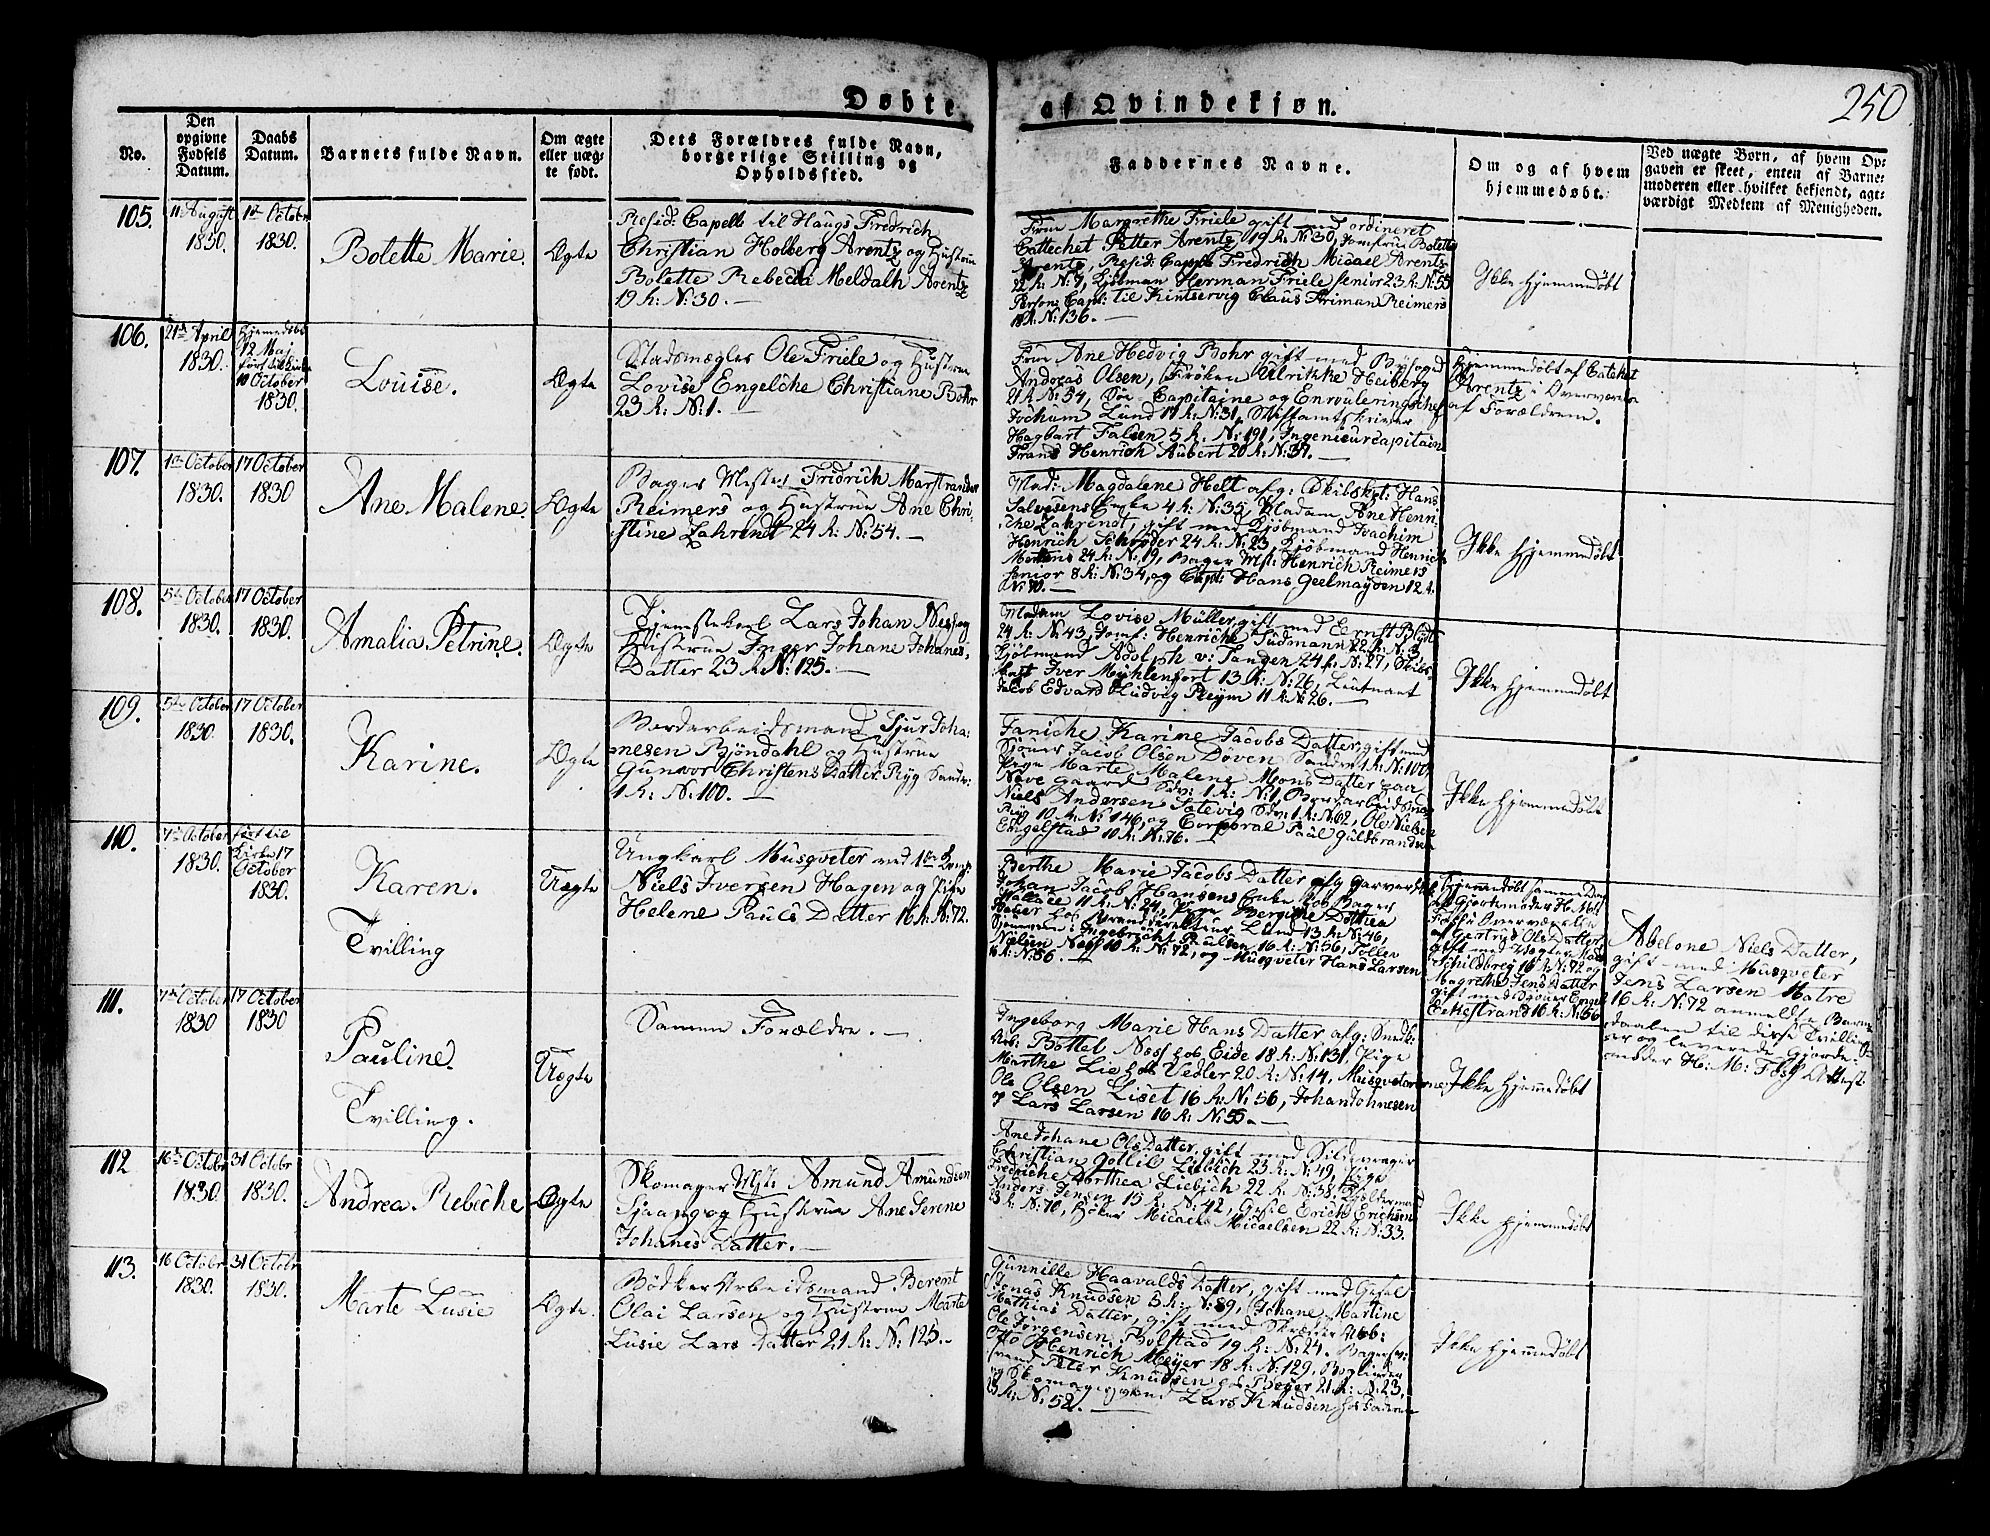 Døbte af Qvindekjøn.
250
No.
Den opgivne Fødsels Datum.
Daabs Datum.
Barnets fulde Navn.
Om ægte eller uægte født.
Dets Forældres fulde Navn, borgerlige Stilling og Opholdssted.
Faddernes Navne.
Om og af hvem hjemmedøbt.
Ved uægte Børn, af hvem Opgaven er skeet, enten af Barnemoderen eller hvilket bekjendt, agtværdigt Medlem af Menigheden.
105.
11 August 1830.
1ste Octobr 1830.
Bolette Marie.
Ægte
Resid: Capellˢ til Haugs Fredrich
Christian Holberg Arentz og Hustrue
Bolette Rebecka Meldalh Arentz
19 R: N: 30. —
Frue Margrethe Friele gift med ordineret
Cattechet Petter Arentz 19 R: N: 30, Jomfrue Bolette
Arentz, Resid: Capell Fredrich Micael Arentz
22 R: N: 9, Kjöbman Herman Friele senior 23 R: N: 55
Person: Capl: til Kintservig Claus Friman Reimers
18 R. N: 136. —
Ikke hjemmedøbt
106.
21de April 1830.
hjemmedøbt
12 Maj
ført til Kirke
10 October
1830.
Louise.
Ægte
Stadsmægler Ole Friele og Hustrue
Lovise Engelche Christiane Bohr
23 R: N: 1. —
Frue Ane Hedvig Bohr gift med Byfoged
Andreas Olsen, Frøken Ulrikke Heiberg
21 R: N: 54, Søe-Capitaine og Enroulerings chef
Jochum Lund 17 R: N: 31, Stiftamtskriver
Hagbart Falsen 5 R. N: 191, Ingenieurcapitain
Frans Henrich Aubert 20 R: N: 37. —
Hjemmedøbt af Catechet
Arentz i Overværelse
af Forældrene.
107.
1ste October 1830.
17 October 1830
Ane Malene.
Ægte
Bager Mester Fridrich Marstrander
Reimers og Hustrue Ane Chri-
stine Zahrendt 24 R: N: 54. —
Mad: Magdalene Helt afg: Skibskpt: Hans
Salvesens Enke 4 R: N: 35, Madam Ane Henri-
che Zahrendt, gift med Kjöbmand Joachim
Henrich Schrøder 24 R: N: 23 Kjöbmand Henrich
Mettens 24 R: N: 19, Bager Mst: Henrich Reimers
senior 8 R: N: 34, og Capt: Hans Geelmayden 12 R.
N: 70. —
Ikke hjemmedøbt
108.
5te October 1830.
17 October 1830.
Amalia Petrine.
Ægte
Tjenestekarl Lars Johan Nes og
Hustrue Inger Johane Johanes
Datter 23 R: N: 125. —
Madam Lovise Müller, gift med Eernst Blydt
24 R: N: 43, Jomf: Henriche Sudmann 22 R: N: 3,
Kjöbmand Adolph v: Tangen 24 R: N: 27, Skibs-
kapt Iver Mühlenfort 13 R: N: 26, Lieutnant
Jacob Edvard Hudvig Pleym 11 R: N: 26. —
Ikke hjemmedøbt
109.
5te October 1830
17 October 1830.
Karine.
Ægte
Bordarbeidsmand Sjur Joha-
nesen Bjöndahl og Hustrue
Gunvor Christens Datter Ryg Sandv:
1 R: N: 100. —
Janiche Karine Jacobs Datter, gift med
Sjöuer Jacob Olsen Døven Sandv: 1 R: N: 100,
Pige Marte Malene Mons Datter paa
Nøvegaard Sdv: 1 R: N: 1, Bordarbeidsmand
Niels Andersen Totevig Sdv: 1 R: N: 62, Ole Nielsen
Ryg 10 R: N: 146, og Corporal Paul Guldbrandsen
Engelstad 10 R: N: 76. —
Ikke hjemmedøbt
110.
7de October 1830.
ført til
Kirke 17
October
1830.
Karen.
Tvilling
Uægte
Ungkarl Musqveter ved 1ste Comp:
Niels Iversen Hagen og Pige
Helene Pauls Datter 16 R: N: 72.
Berthe Marie Jacobs Datter afg Garversv:
Johan Jacob Hansens Enke hos Bager
Wallace 11 R: N: 24, Pige Bergithe Dotthea
hos Branddirekteur Lund 13 R: N: 46,
Ingebricht Paulsen 16 R: N: 56, Tollev
Nielsen Næss 10 R: N: 72, og Musqveter Hans Larsen
16 R: N: 56. —
Hjemmedøbt samme Dag
af Gjordemoder H: M:
Foss i Overværelse
af Gertrud Ols Datter,
gift med Vogner Mad
Schildbreg 16 R: N: 72 og
Magrethe Jens Datter
gift med Sjöuer Engel
Eckestrand 16 R: N: 56
Abelone Niels Datter,
gift med Musqveter
Jens Larsen Matre
16 R: N: 72 anmeldte Barne-
daaben til disse Tvillin-
ger og leverede Gjorde-
moder H: M: Foss Attest.
111.
7de October 1830
17 October 1830
Pauline.
Tvilling.
Uægte
Samme Forældre. —
Ingeborg Marie Hans Datter afg: Snedk:
Arb: Bottel Noss hos Eide 18 R: N: 131, Pige
Marthe Lie hos Vedler 20 R: N: 14, Musqveterne
Ole Olsen Liset 16 R: N: 56, Johan Johnesen
og Lars Larsen 16 R: N: 55. —
Ikke hjemmedøbt
112
16de Octobr 1830.
31 Octobr 1830.
Andrea Rebiche
Ægte
Skomager Mst: Amund Amundsen
Sjaang og Hustrue Ane Serene
Johanes Datter. —
Ane Johane Ols Datter, gift med Sildevrager
Christian Gotlib Liebich 23 R: N: 49, Pige
Fredriche Dorthea Liebich 22 R: N: 38,
Anders Jensen 15 R: N: 42, Gesel Erich Erichsen
23 R: N: 70, Bøker Micael Micaelsen 22 R: N: 33.
Ikke hjemmedøbt
113.
16 Octobr 1830.
31 Octobr 1830.
Marte Lusie
Ægte.
Bødker Arbeidsmand Berent
Olai Larsen og Hustrue Marte
Lusie Lars Datter 21 R: N: 125. —
Gunnille Haavalds Datter, gift med Gesel
Jonas Knudsen 5 R: N: 89, Johane Martine
Mathias Datter, gift med Skræder Arb:
Ole Jørgensen Bolstad 19 R: N: 24, Bagersv:
Otto Henrich Meyer 18 R: N: 129, Bogbinder
svend Peter Knudsen hos Beyer 21 R: N: 23,
og Skomagersvend Lars Knudsen hos Faderen
5 R: N: 52. —
Ikke hjemmedøbt